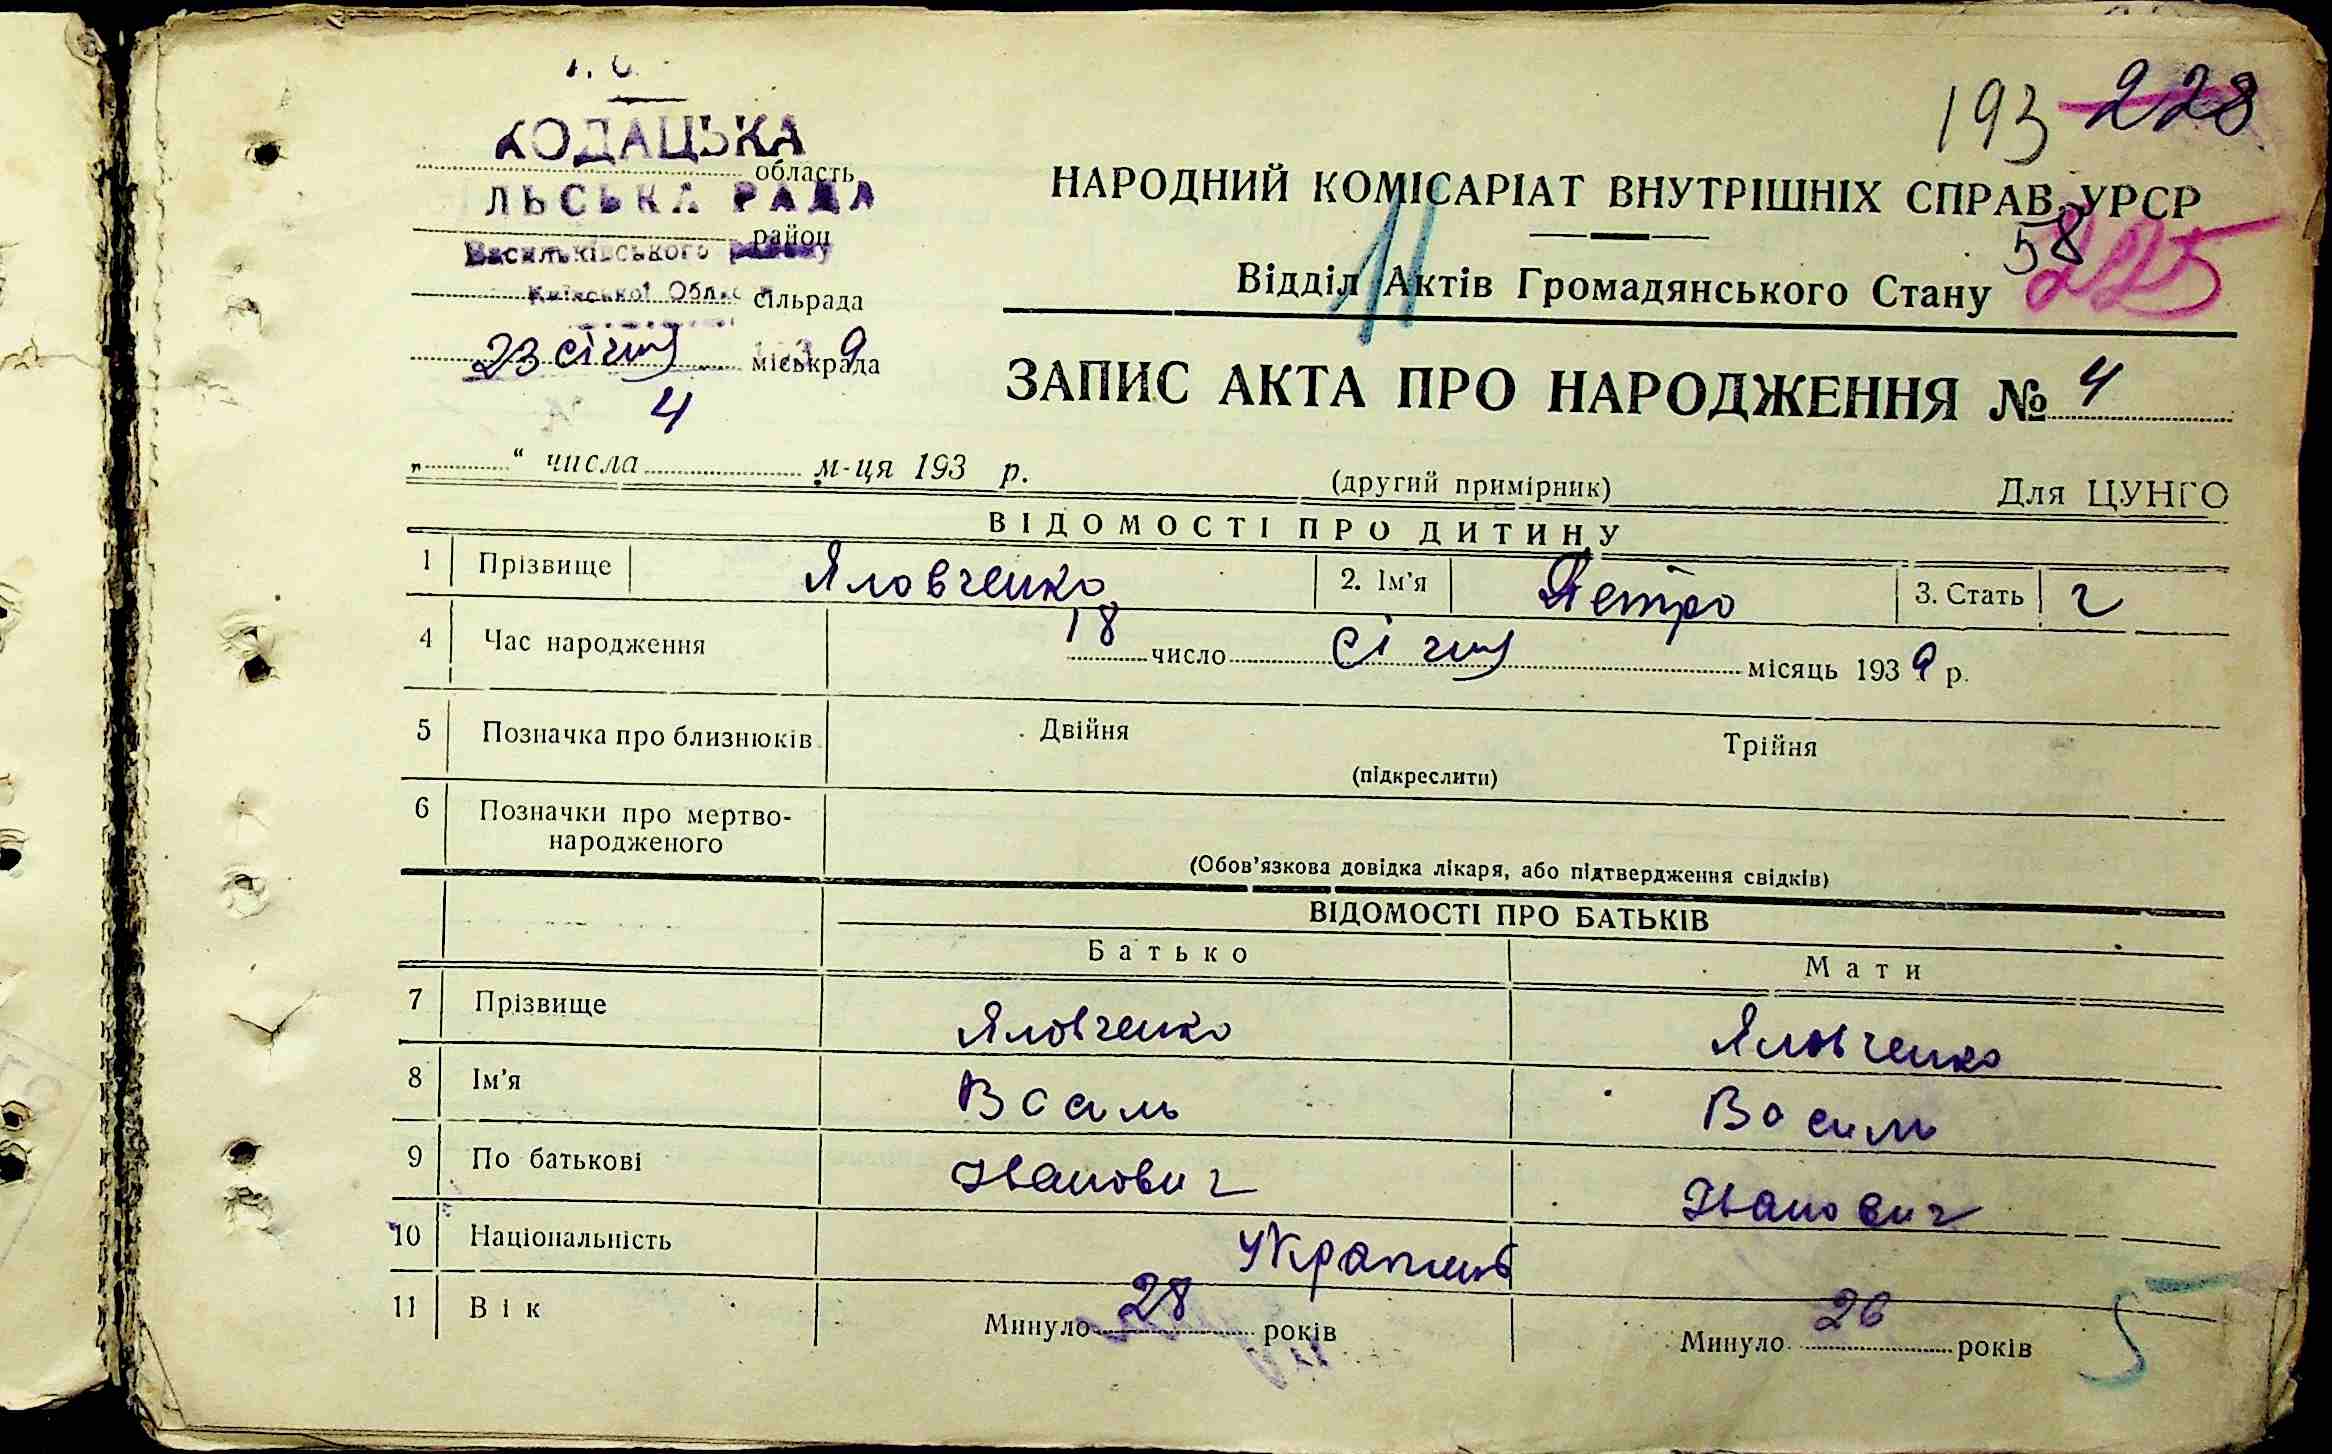 193 228
КОДАЦЬКА
область
ЛЬСЬКА РАДА
район
Васильківського району
Київської Обл.
сільрада
23 січня 1939
міськрада
4
НАРОДНИЙ КОМІСАРІАТ ВНУТРІШНІХ СПРАВ, УРСР
11
58
Відділ Актів Громадянського Стану 225
ЗАПИС АКТА ПРО НАРОДЖЕННЯ № 4
„ “ числа м-ця 193 р.
(другий примірник)
Для ЦУНГО
ВІДОМОСТІ ПРО ДИТИНУ
1 Прізвище Яловченко 2. Ім'я Петро 3. Стать ч
4 Час народження 18 число січня місяць 1939 р.
5 Позначка про близнюків Двійня Трійня
(підкреслити)
6 Позначки про мертво-
народженого
(Обов'язкова довідка лікаря, або підтвердження свідків)
ВІДОМОСТІ ПРО БАТЬКІВ
Батько Мати
7 Прізвище Яловченко Яловченко
8 Ім'я Василь Василь
9 По батькові Іванович Іванович
10 Національність
11 Вік Минуло 28 років Минуло 26 років
5